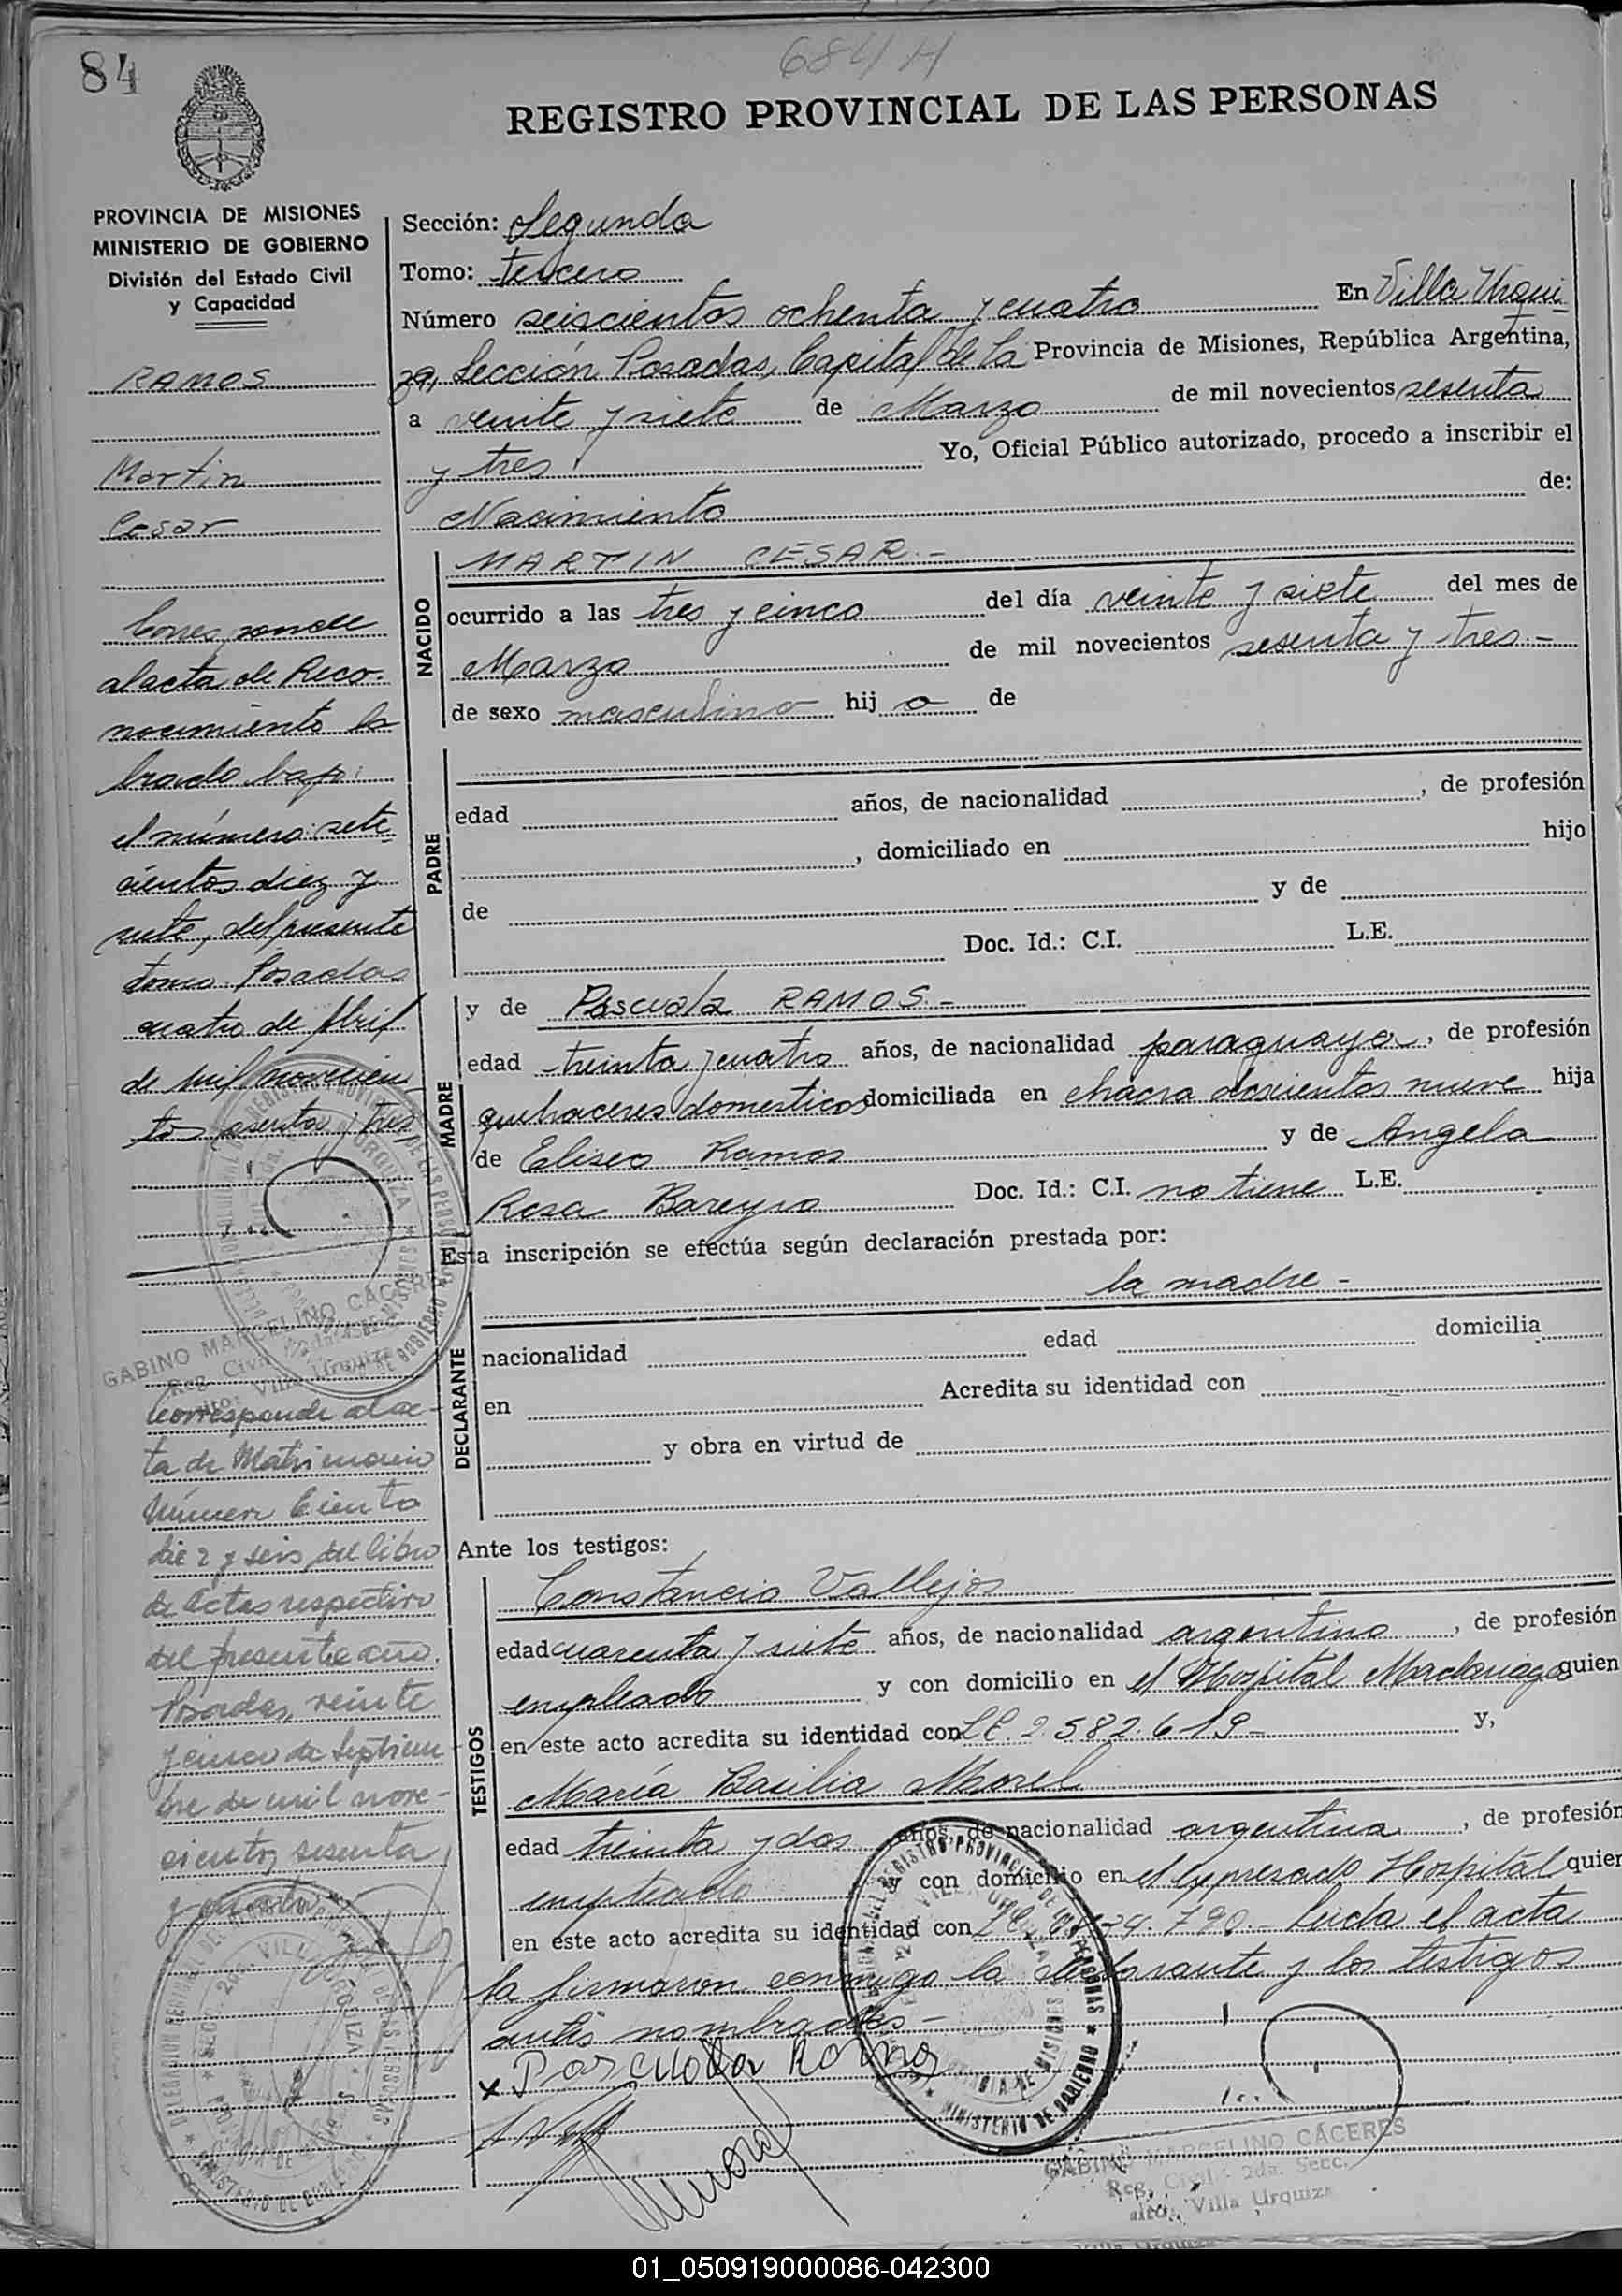 84
684 H
REGISTRO PROVINCIAL DE LAS PERSONAS
PROVINCIA DE MISIONES
MINISTERIO DE GOBIERNO
División del Estado Civil
y Capacidad
RAMOS
Martin
Cesar
Corresponde
al acta de Reco-
nocimiento la
brado bajo
el número sete
cientos diez y
siete, del presente
tomo Posadas
cuatro de Abril
de mil novecien
tos sesenta y tres
GABINO MARCELINO CACERES
Reg. Civil
Villa Urquiza
Corresponde al ac-
ta de Matrimonio
Número Ciento
diez y seis del libro
de actas respectivo
del presente año.
Posadas, veinte
y cinco de Septiem
bre de mil nove-
cientos sesenta
y cuatro
Sección: Segunda
Tomo: tercero
Número seiscientos ochenta y cuatro En Villa Urqui
za, Sección Posadas, Capital de la Provincia de Misiones, República Argentina,
a veinte y siete de Marzo de mil novecientos sesenta
y tres Yo, Oficial Público autorizado, procedo a inscribir el
Nacimiento de:
NACIDO
MARTIN CESAR.-
ocurrido a las tres y cinco del día veinte y siete del mes de
Marzo de mil novecientos sesenta y tres.-
de sexo masculino hij o de
PADRE
edad años, de nacionalidad , de profesión
, domiciliado en hijo
de y de
Doc. Id.: C.I. L.E.
MADRE
y de Pascuala RAMOS.-
edad treinta y cuatro años, de nacionalidad paraguaya, de profesión
quehaceres domesticos domiciliada en chacra doscientos nueve hija
de Eliseo Ramos y de Angela
Rosa Bareyro Doc. Id.: C.I. no tiene L.E.
Esta inscripción se efectúa según declaración prestada por:
la madre -
DECLARANTE
nacionalidad edad domicilia
en Acredita su identidad con
y obra en virtud de
Ante los testigos:
TESTIGOS
Constancio Vallejos
edad cuarenta y siete años, de nacionalidad argentino, de profesión
empleado y con domicilio en el Hospital Madariaga quien
en este acto acredita su identidad con L.E. 2.582.619- y,
María Basilia Morel
edad treinta y dos años, de nacionalidad argentina, de profesión
empleada y con domicilio en el expresado Hospital quien
en este acto acredita su identidad con Leida el acta
la firmaron conmigo la declarante y los testigos
antes nombrados-
x Pascuala Ramos
GABINO MARCELINO CÁCERES
Reg. Civil - 2da. Secc.
Villa Urquiza
01_050919000086-042300